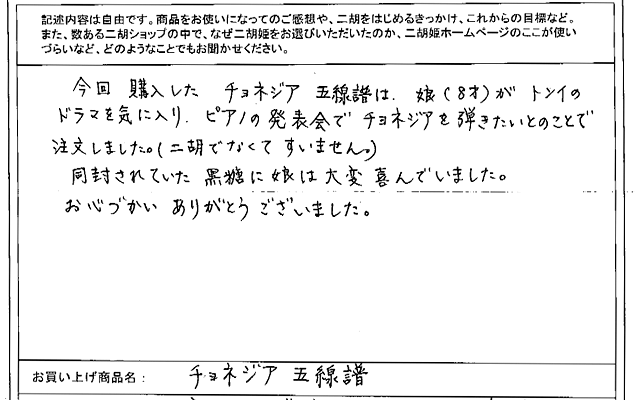 記述内容は自由です。商品をお使いになってのご感想や、二胡をはじめるきっかけ、これからの目標など。
また、数ある二胡ショップの中で、なぜ二胡姫をお選びいただいたのか、二胡姫ホームページのここが使い
づらいなど、どのようなことでもお聞かせください。
今回 購入した チョネジア 五線譜は、娘(8才)が トンイの
ドラマを気に入り、ピアノの発表会で チョネジアを弾きたいとのことで
注文しました。(二胡でなくて すいません。)
同封されていた 黒糖に 娘は 大変 喜んでいました。
お心づかい ありがとう ございました。
お買い上げ商品名: チョネジア 五線譜